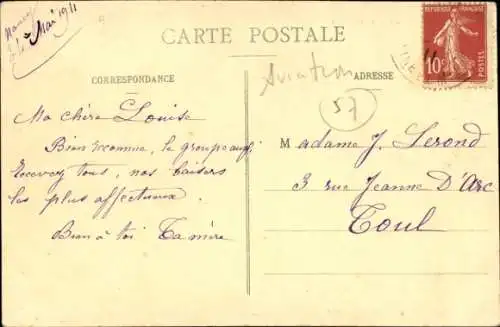 Nancy
Mai 1911
CARTE POSTALE
CORRESPONDANCE
ADRESSE
Aviation
57
REPUBLIQUE FRANÇAISE
10c
POSTES
Ma chère Louise
Bien reconnue, le groupe
Recevez tous, nos baisers
les plus affectueux.
Bien à toi Ta mère
Madame J. Lerond
3 rue Jeanne D'Arc
Toul